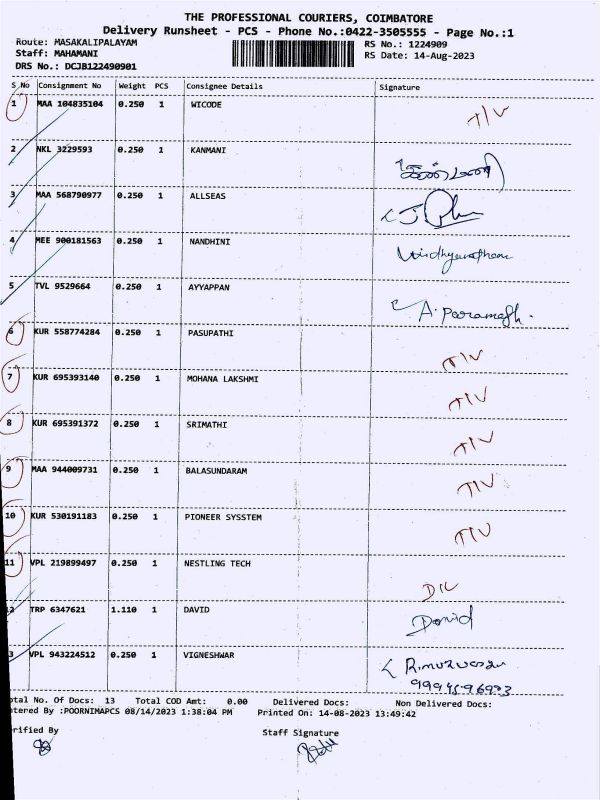 THE PROFESSIONAL COURIERS, COIMBATORE
Delivery Runsheet - PCS - Phone No.:0422-3505555 - Page No.:1
Route: MASAKALIPALAYAM RS No.: 1224909
Staff: MAHAMANI RS Date: 14-Aug-2023
DRS No.: DCJB122490901
S No Consignment No Weight PCS Consignee Details Signature
1 MAA 104835104 0.250 1 WICODE T/V
2 NKL 3229593 0.250 1 KANMANI கண்மணி
3 MAA 568790977 0.250 1 ALLSEAS
4 MEE 900181563 0.250 1 NANDHINI
5 TVL 9529664 0.250 1 AYYAPPAN A. Paramesh.
6 KUR 558774284 0.250 1 PASUPATHI T/V
7 KUR 695393140 0.250 1 MOHANA LAKSHMI T/V
8 KUR 695391372 0.250 1 SRIMATHI T/V
9 MAA 944009731 0.250 1 BALASUNDARAM T/V
10 KUR 530191183 0.250 1 PIONEER SYSSTEM T/V
11 VPL 219899497 0.250 1 NESTLING TECH D/L
12 TRP 6347621 1.110 1 DAVID David
3 VPL 943224512 0.250 1 VIGNESHWAR
otal No. Of Docs: 13 Total COD Amt: 0.00 Delivered Docs: Non Delivered Docs:
tered By :POORNIMAPCS 08/14/2023 1:38:04 PM Printed On: 14-08-2023 13:49:42
rified By Staff Signature